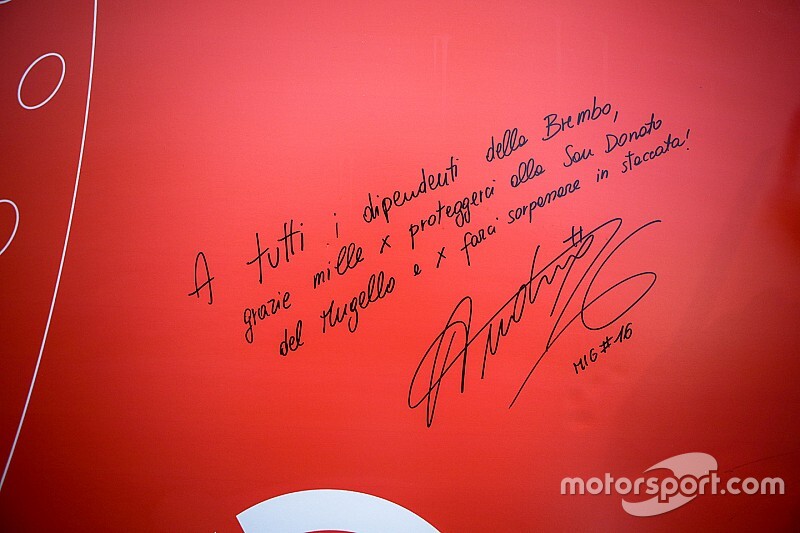 A tutti i dipendenti della Brembo,
grazie mille x proteggerci alla San Donato
del Mugello e x farci sorpassare in staccata!
#
MIG#16
motorsport.com